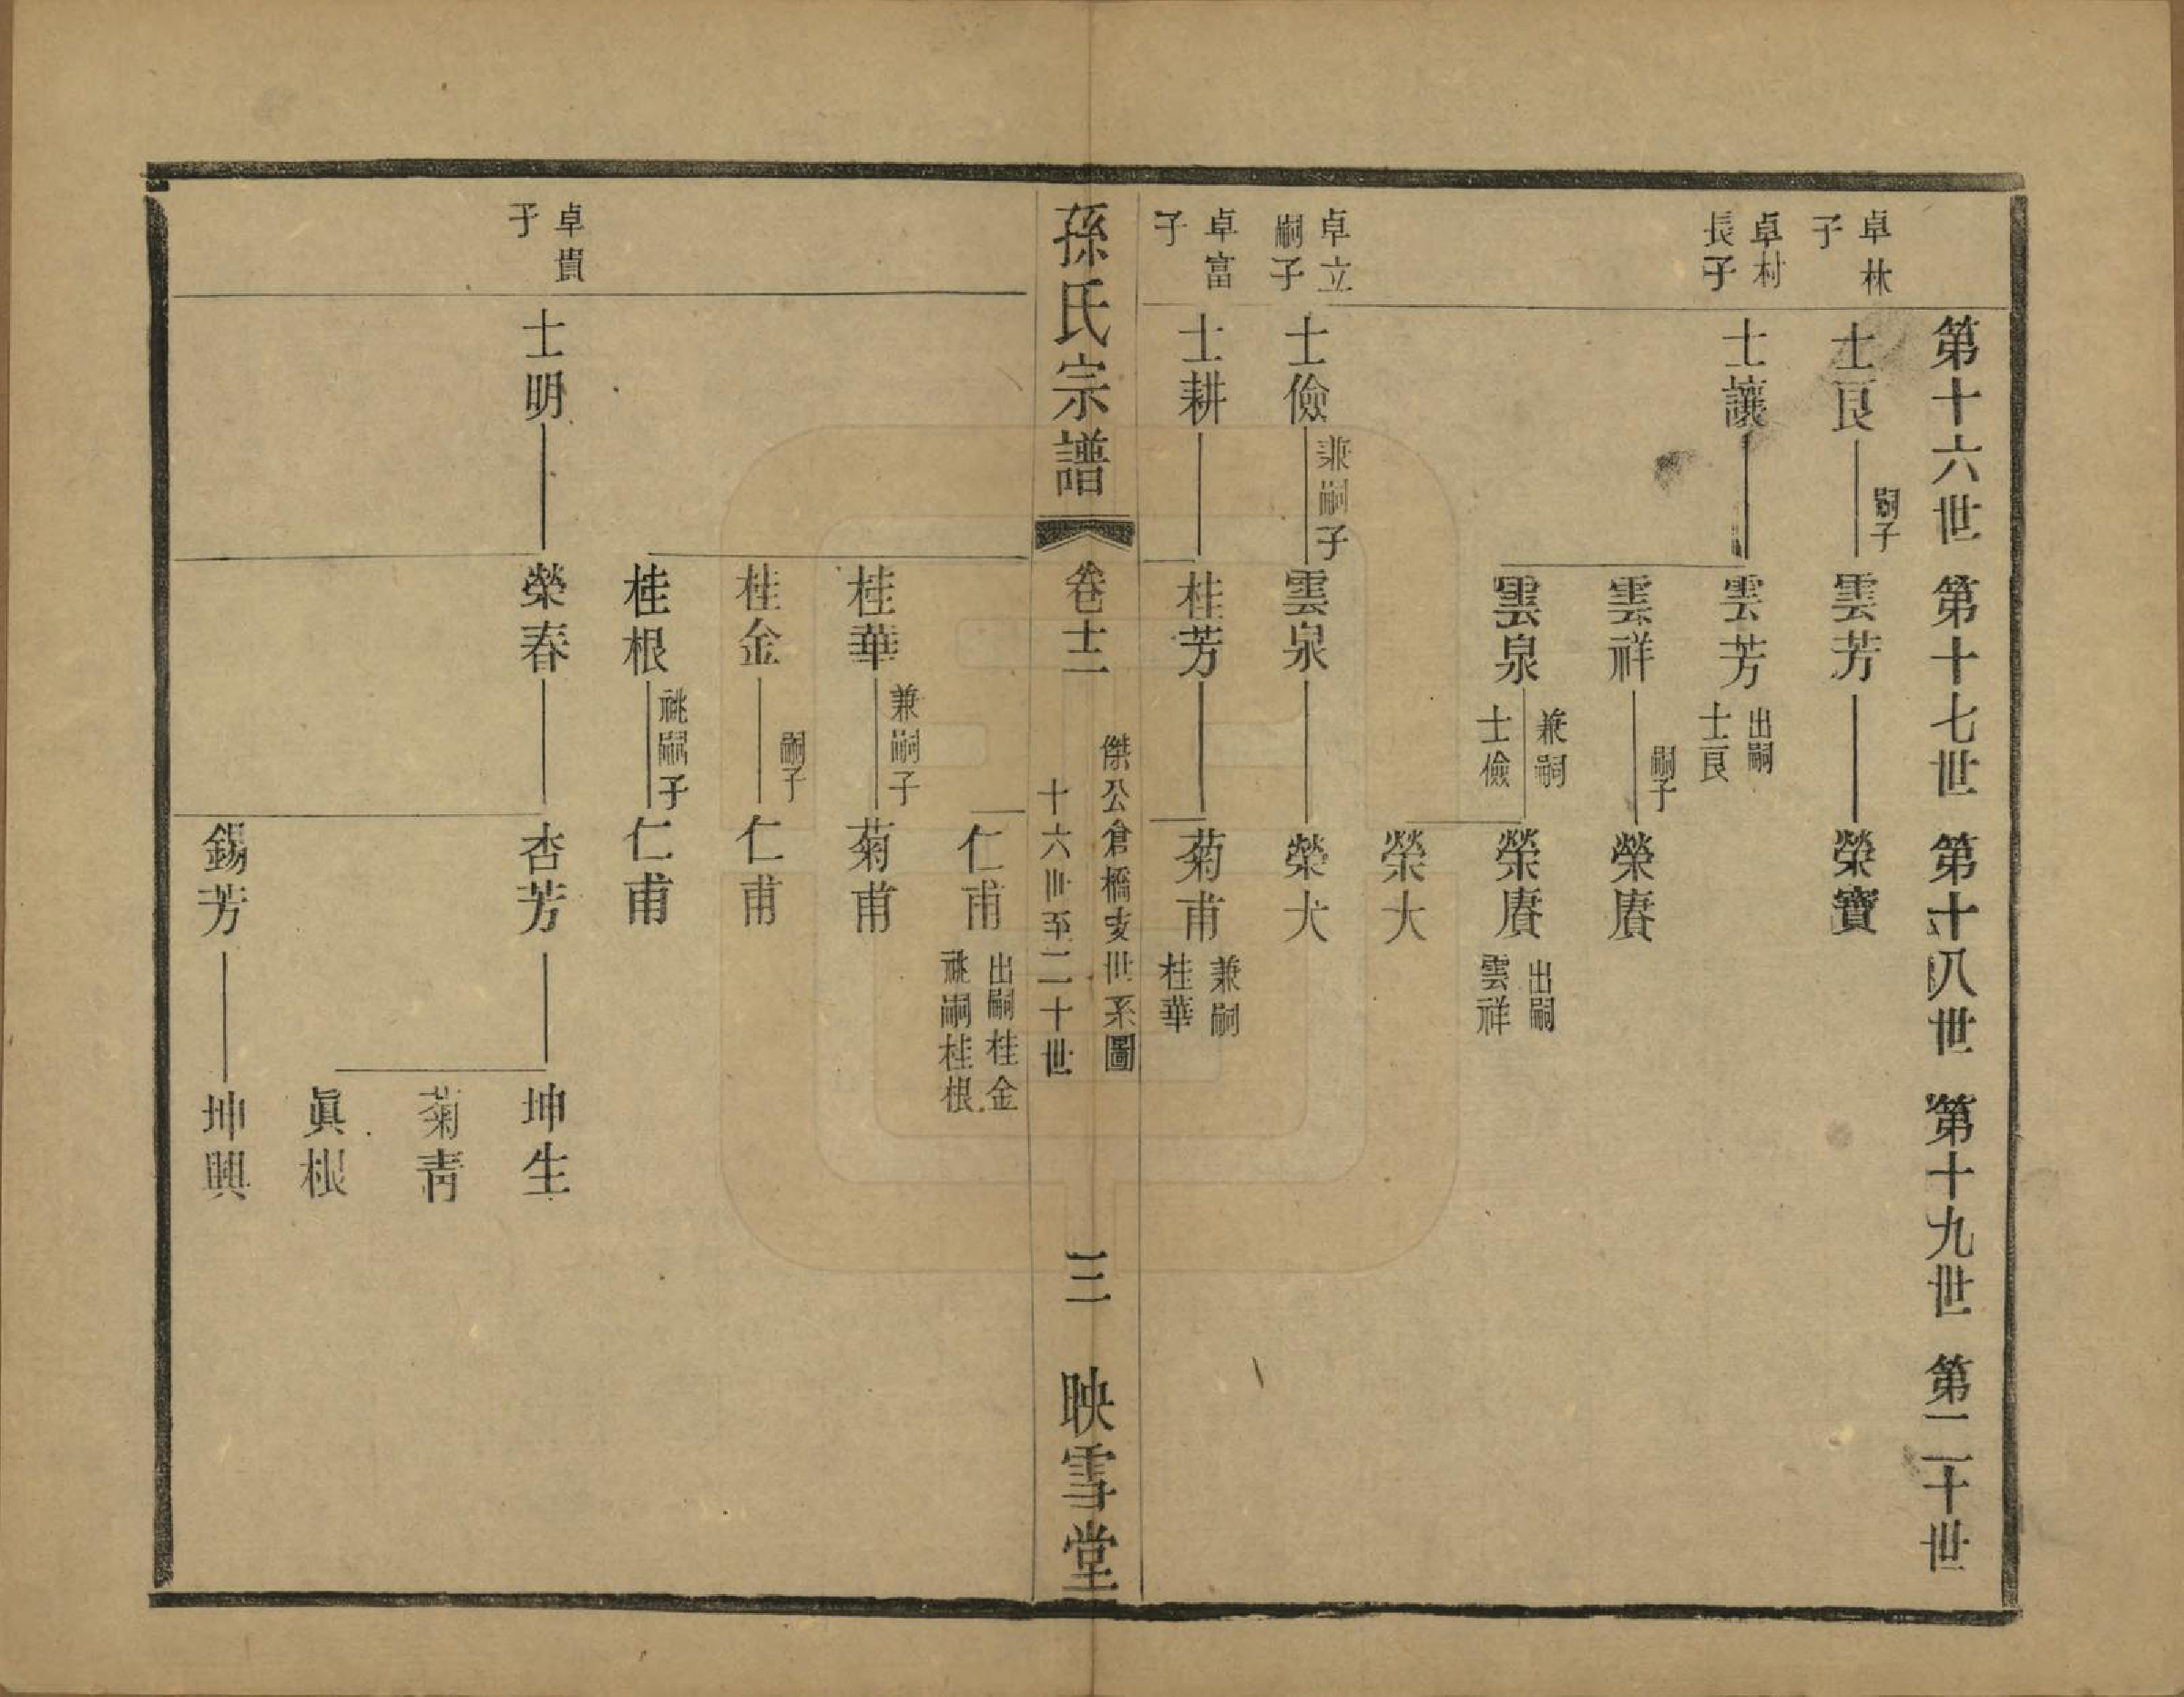 第十六世　第十七世　第十八世　第十九世　第二十世
卓林
子
士良
嗣子
雲芳
榮寶
卓村
長子
士讓
雲芳
出嗣
士良
雲祥
嗣子
榮賡
雲泉
兼嗣
士儉
榮賡
出嗣
雲祥
榮大
卓立
嗣子
士儉
兼嗣子
雲泉
榮大
卓富
子
士耕
桂芳
菊甫
兼嗣
桂華
孫氏宗譜
卷十二
傑公倉橋支世系圖
十六世至二十世
三
映雪堂
仁甫
出嗣桂金
祧嗣桂根
桂華
兼嗣子
菊甫
桂金
嗣子
仁甫
桂根
祧嗣子
仁甫
卓貴
子
士明
榮春
杏芳
坤生
菊靑
眞根
錫芳
坤興